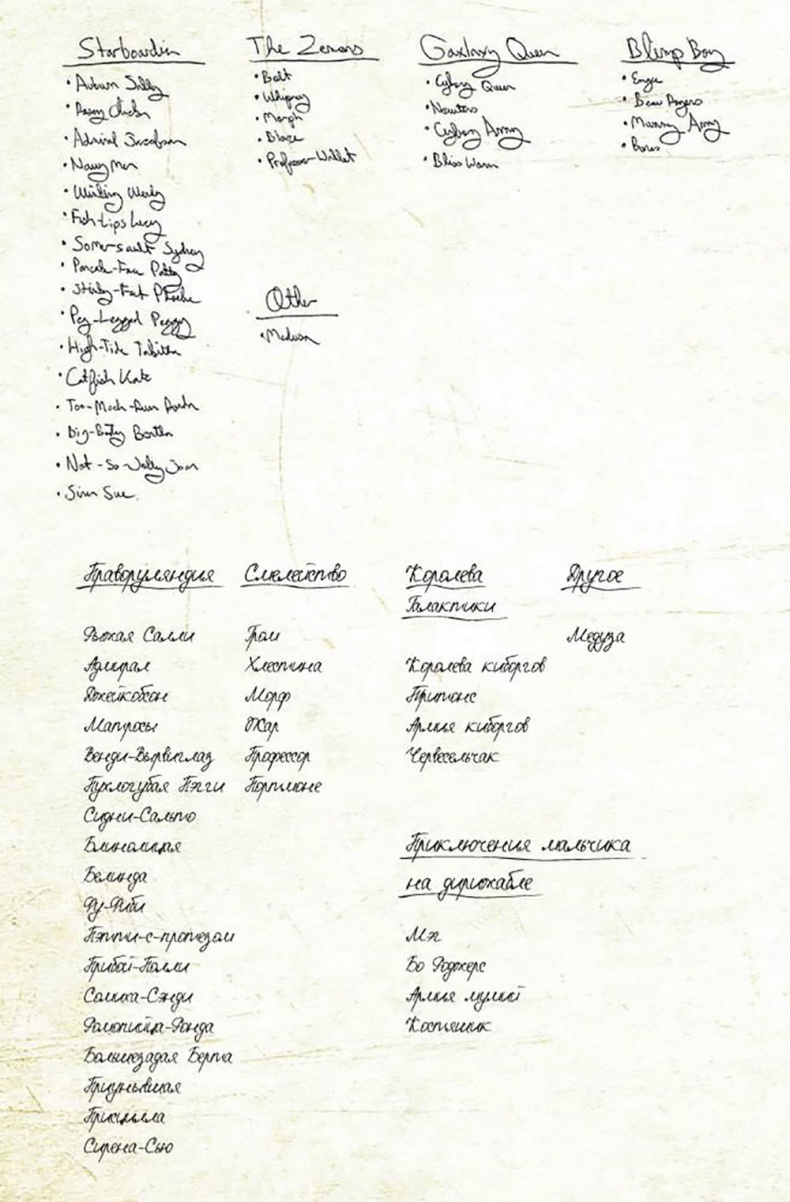 Starboardia
• Auburn Sally
• Chicken
• Admiral Jacobson
• Navy Men
• Wendy
• Fish-Lips Lucy
• Somersault Sydney
• Pancake-Face Patty
• Stinky-Feet Phoebe
• Peg-Legged Peggy
• High-Tide Tabitha
• Catfish Kate
• Too-Much-Rum Ronda
• Big-Booty Bertha
• Not-So-Jolly Joan
• Siren Sue
The Ziemons
• Bolt
• Whipney
• Morph
• Blaze
• Professor Wallet
Other
• Medusa
Queen
• Cyborg Queen
• Newters
• Cyborg Army
• Bliss Worm
Blimp Boy
• Beau Rogers
• Mummy Army
• Bones
Праворуляндия
Рыжая Салли
Адмирал
Джейкобсон
Матросы
Венди-Вырвиглаз
Пухлогубая Пэгги
Сидни-Сальто
Блинолицая
Белинда
Фу-Фиби
Пэтти-с-протезом
Прибой-Полли
Сомиха-Сэнди
Ромопийца-Ронда
Большезадая Берта
Приунывшая
Присцилла
Сирена-Сью
Смелейство
Гром
Хлестина
Морф
Жар
Профессор
Портмоне
Королева
Галактики
Королева киборгов
Притонс
Армия киборгов
Червесельчак
Приключения мальчика
на дирижабле
Мэг
Бо Роджерс
Армия мумий
Костяшик
Другое
Медуза